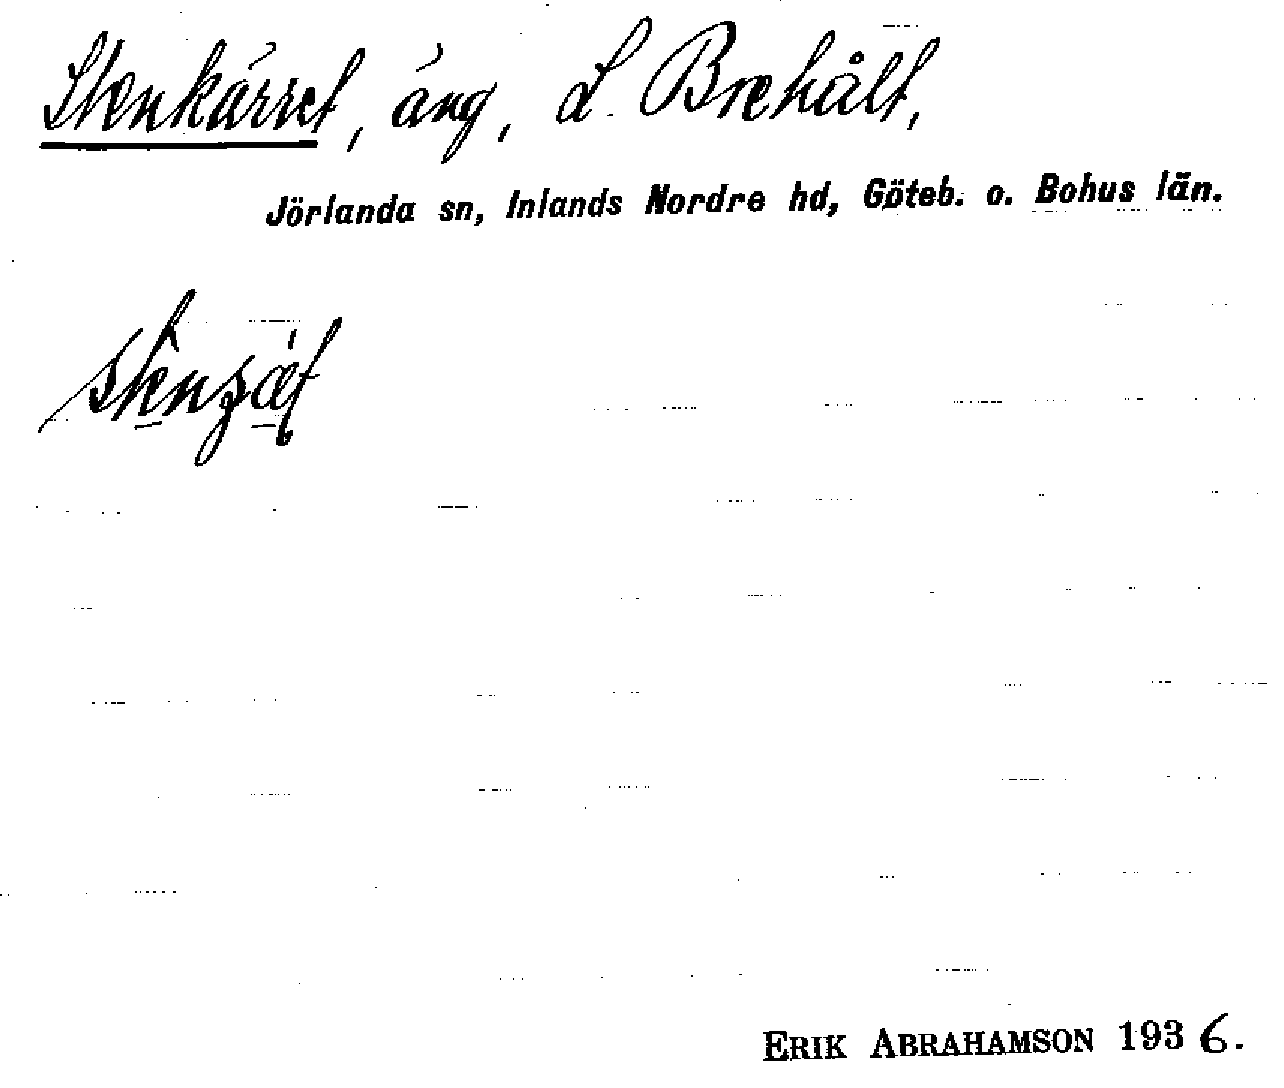 Stenkärret, äng, L. Brehålt,
Jörlanda sn, Inlands Nordre hd, Göteb. o. Bohus län.
ERIK ABRAHAMSON 1936.